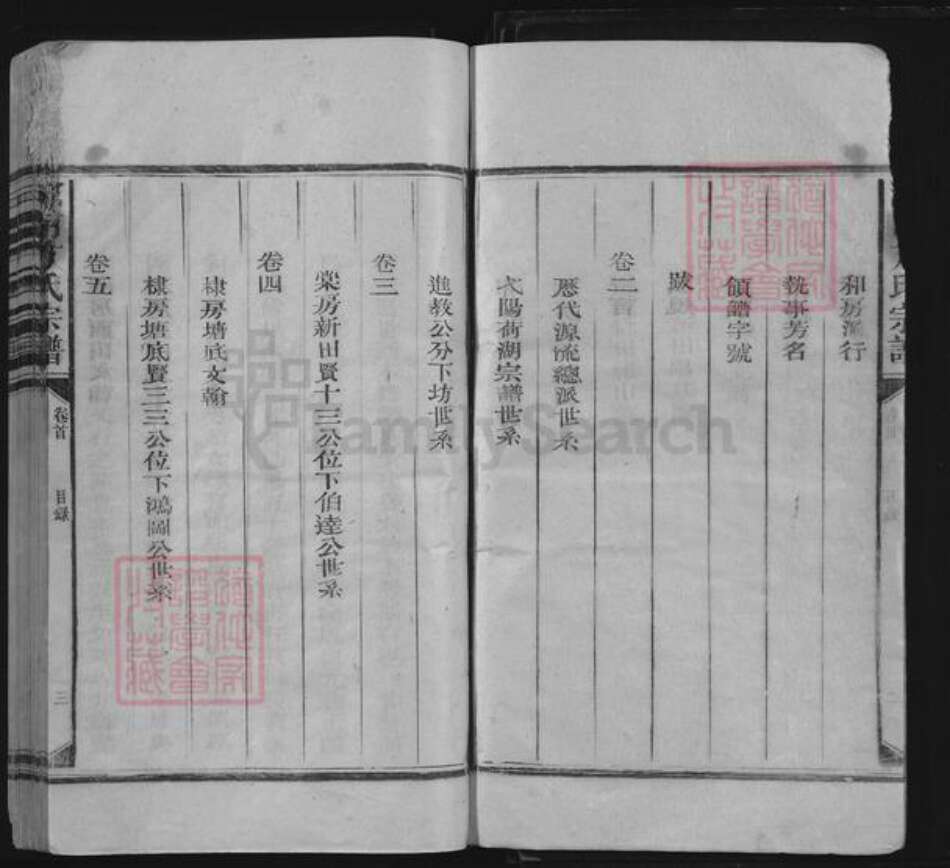 和房派行
執事芳名
領譜字號
跋
卷二
歷代源流總派世系
弋陽荷湖宗譜世系
進教公分下坊世系
卷三
榮房新田賢十三公位下伯達公世系
卷四
棣房塘底文翰
棣房塘底賢三三公位下鴻圖公世系
卷五
氏宗譜
卷首
目錄
三
氏宗譜
FamilySearch